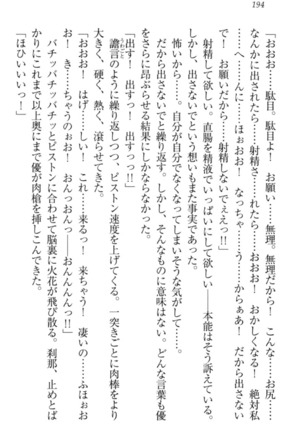 194
「おおお！　駄目。駄目よ！　お願い……無理。無理だから！　こんな……お尻……
なんかに出されたら……射精さ……れたら……おおお！　おかしくなる！　絶対私
……へ……んに……ほぉおお！　なっちゃ……う……からぁあ！　だから出さない
で！　お願いだから……射精しないでぇえっ!!」
　射精して欲しい。直腸を精液でいっぱいにして欲しい――本能はそう訴えている。
しかし、出さないでという想いもまた事実であった。
　怖いから……。自分が自分でなくなってしまいそうな気がして……。
　だから出さないでと繰り返す。しかし、そんなものに意味はない。どんな言葉も優
をさらに昂ぶらせる結果にしかならなかった。
「出す！　出すっ！　出すっ!!」
　譫言のように繰り返しつつ、ピストン速度を上げてくる。一突きごとに肉棒をより
大きく、硬く、熱く、滾らせてきた。
「おおお！　はげ……しい！　これ……来るっ！　来ちゃう！　凄いの……ふほぉお
お！　き……ちゃうのぉお！　おんっおんっ――おんんんんっ!!」
　バチッバチッバチッとピストンに合わせて脳裏に火花が飛び散る。刹那、止めとば
かりにこれまで以上奥にまで優が肉槍を挿しこんできた。
「ほひいいいっ！」